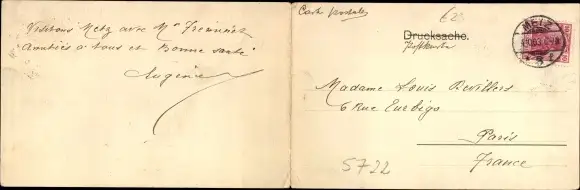 Visitons Metz avec Mr
Amitiés à tous et Bonne santé
Eugénie
Carte postale
£2
Drucksache.
Postkarte
METZ
Madame Louis Bevillers
6 Rue Turbigo
Paris
France
5722